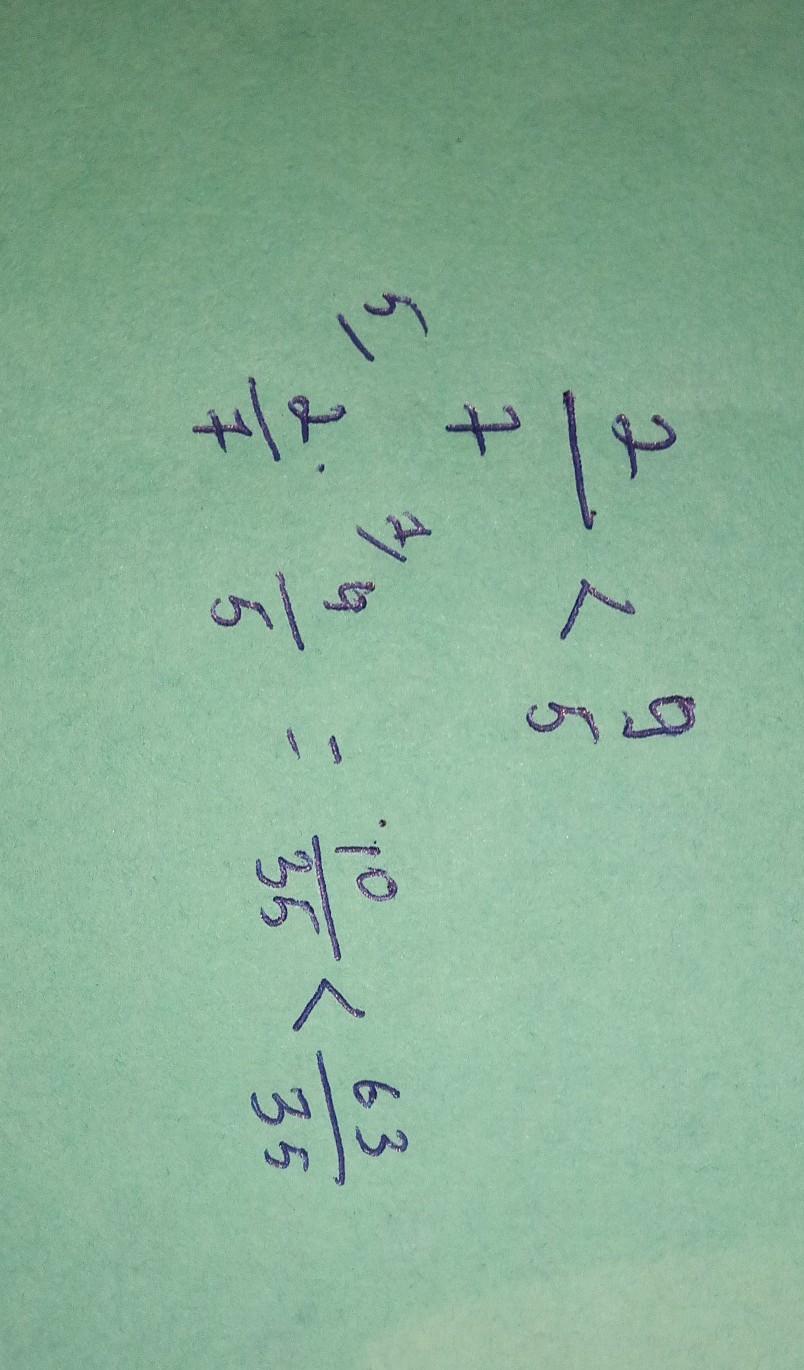 2/7 < 9/5
5/ 2/7 . 7/ 9/5 = 10/35 < 63/35